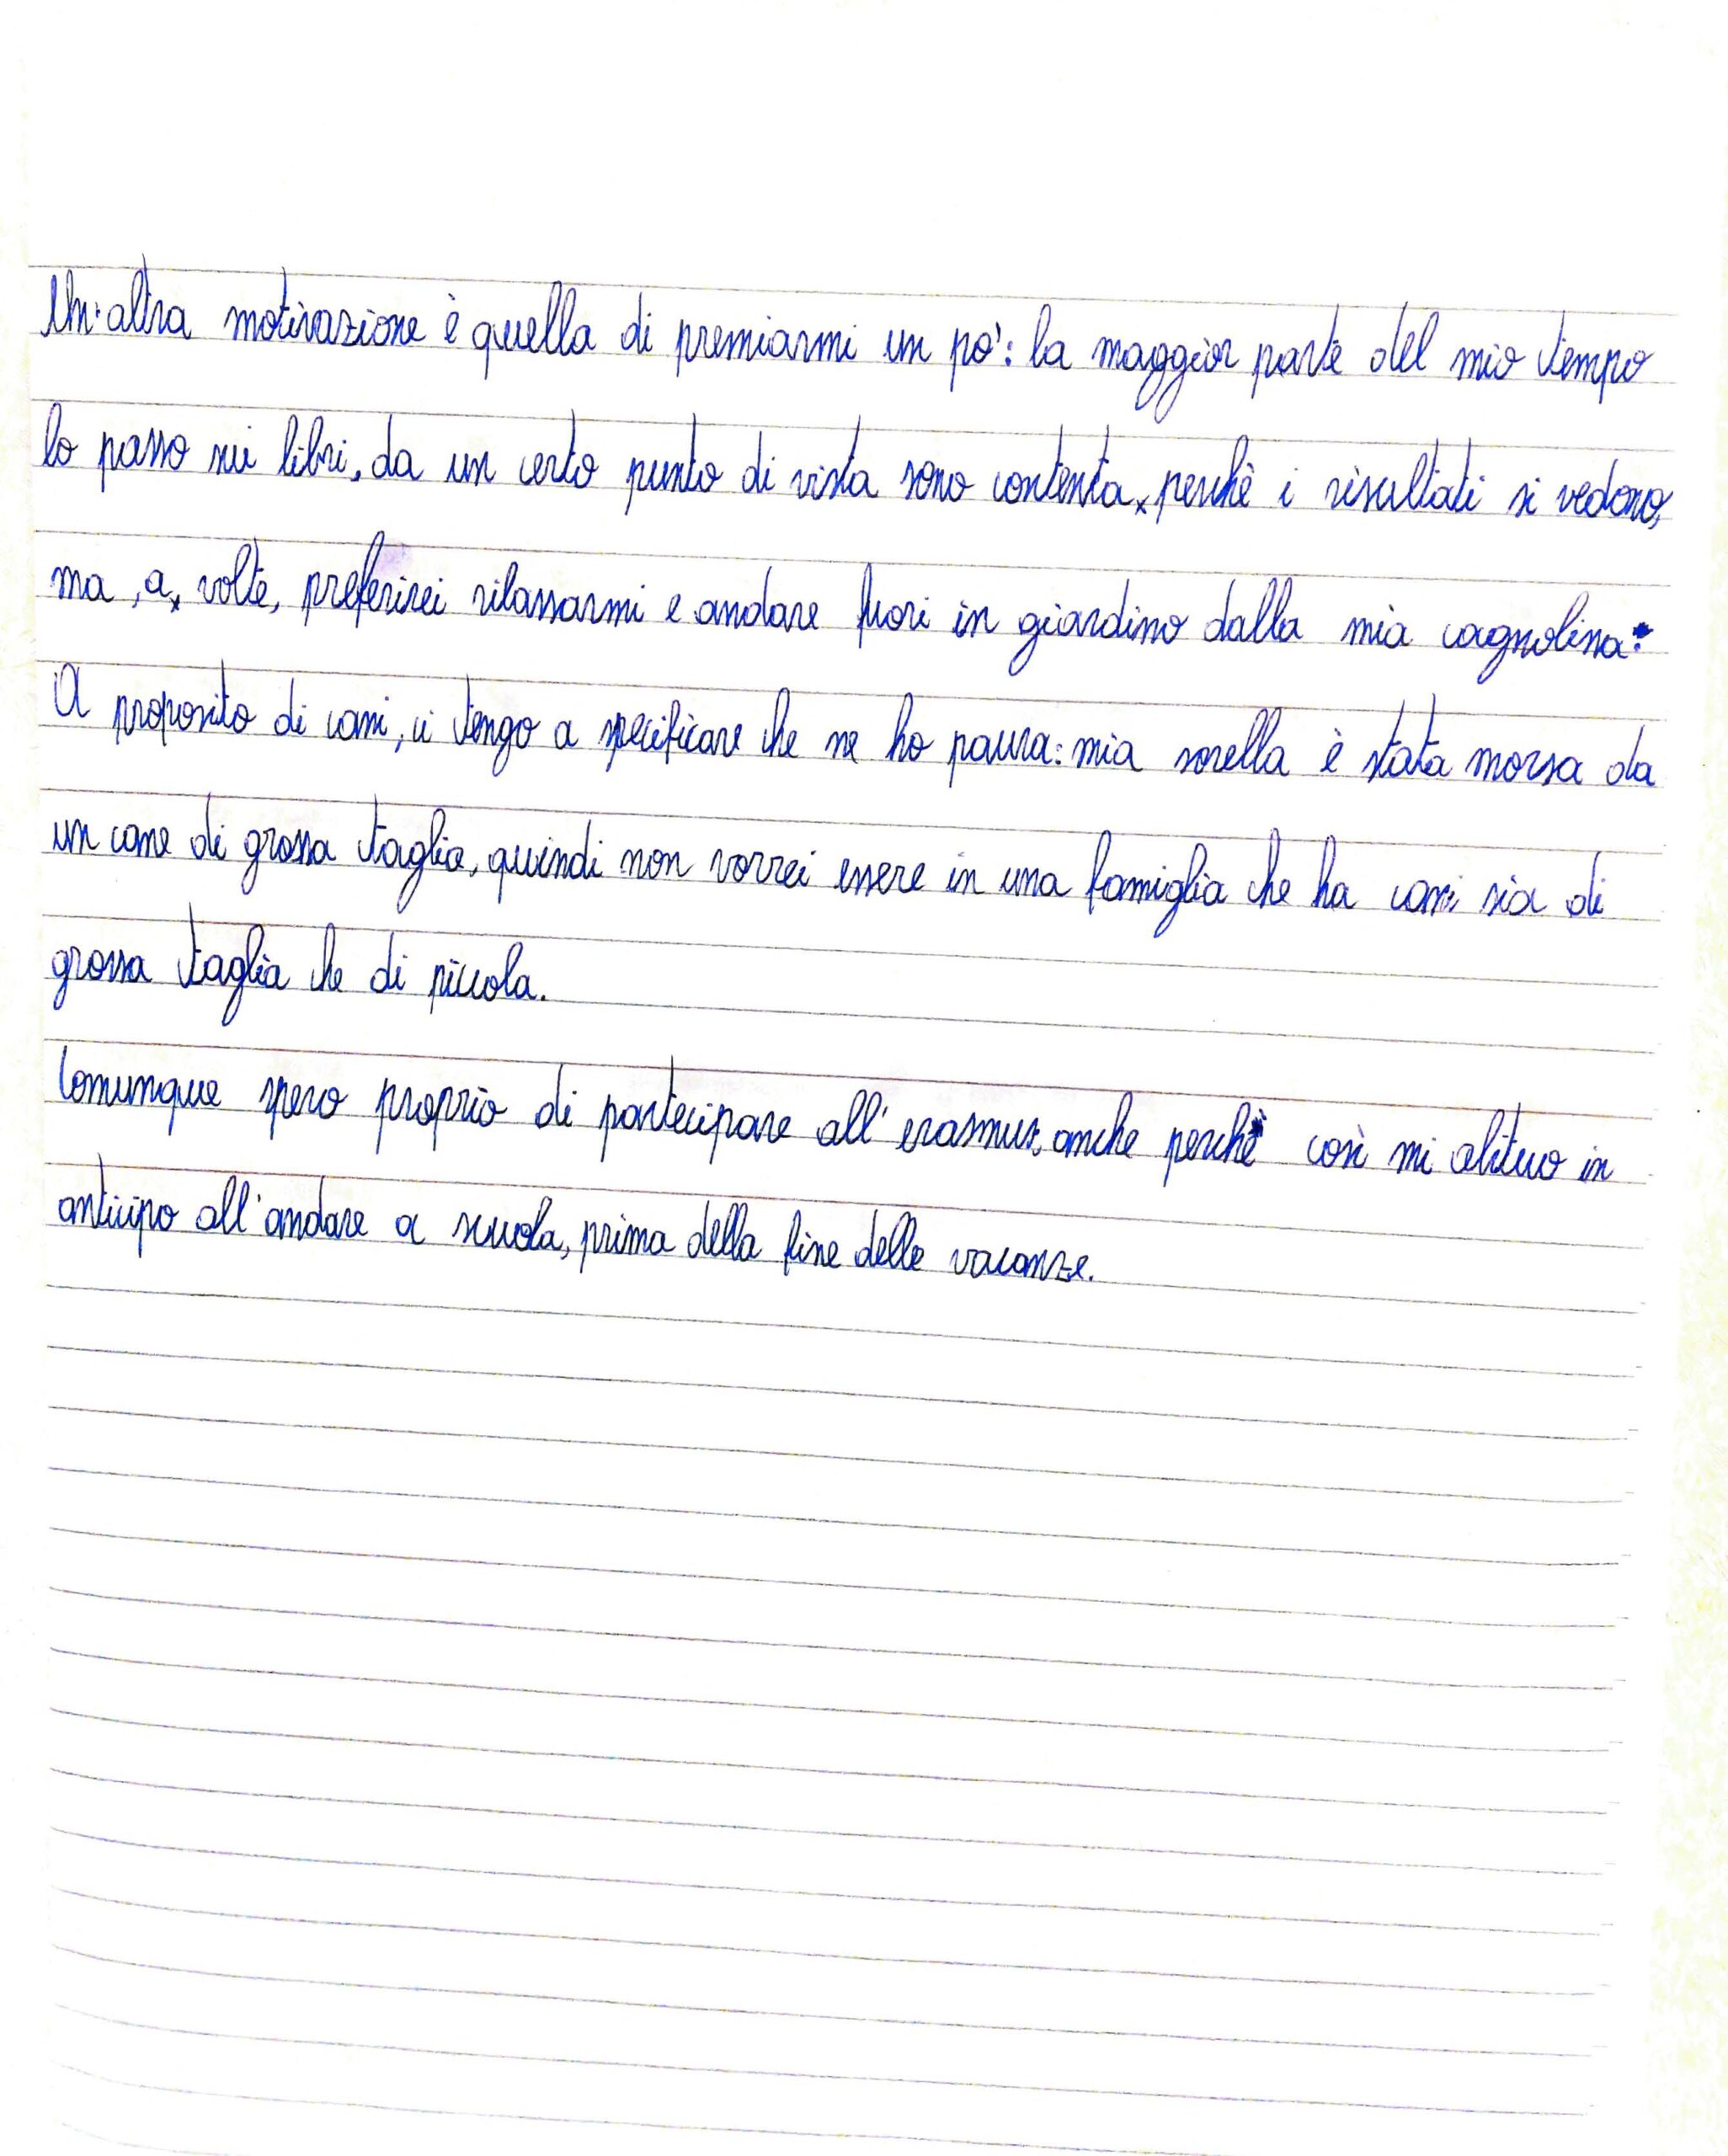 Un'altra motivazione è quella di premiarmi un pò: la maggior parte del mio tempo
lo passo sui libri, da un certo punto di vista sono contenta, perchè i risultati si vedono,
ma, a volte, preferirei rilassarmi e andare fuori in giardino dalla mia cagnolina.
A proposito di cani, ci tengo a specificare che ne ho paura: mia sorella è stata morsa da
un cane di grossa taglia, quindi non vorrei essere in una famiglia che ha cani sia di
grossa taglia che di piccola.
Comunque spero proprio di partecipare all'erasmus, anche perchè così mi abituo in
anticipo all'andare a scuola, prima della fine delle vacanze.